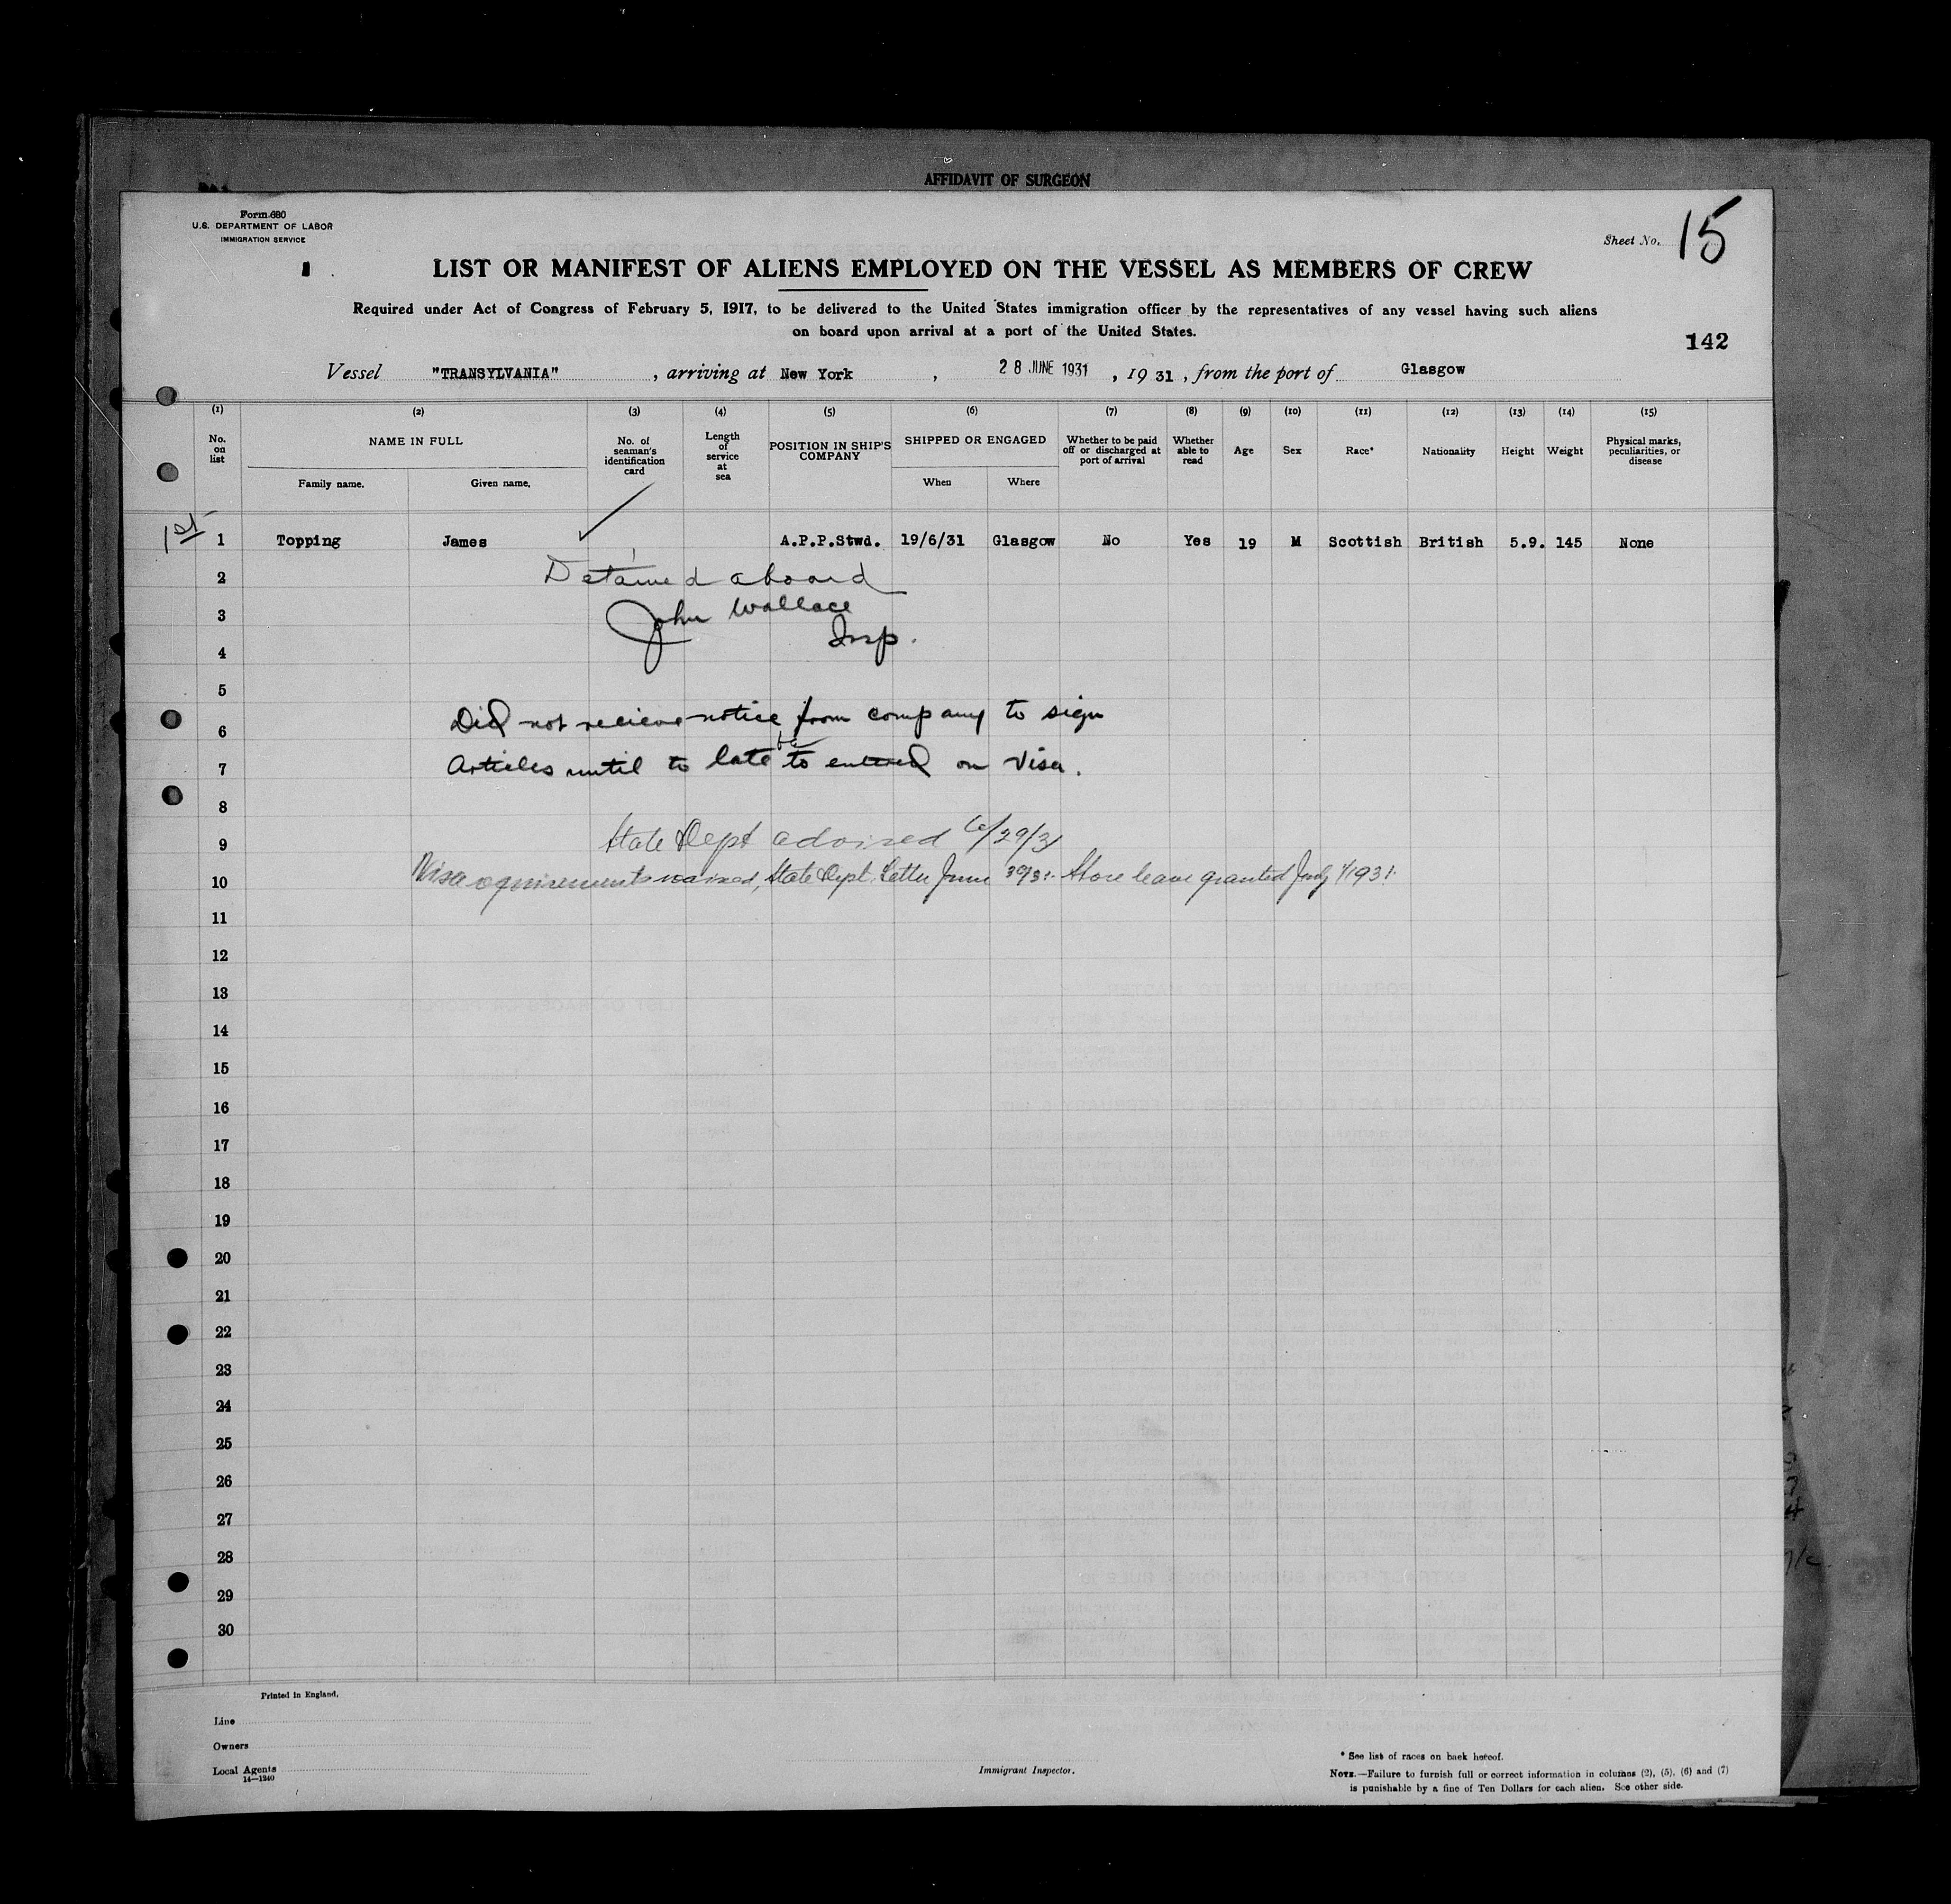 AFFIDAVIT OF SURGEON
Form 680
U.S. DEPARTMENT OF LABOR
IMMIGRATION SERVICE
Sheet No. 15
LIST OR MANIFEST OF ALIENS EMPLOYED ON THE VESSEL AS MEMBERS OF CREW
Required under Act of Congress of February 5, 1917, to be delivered to the United States immigration officer by the representatives of any vessel having such aliens
on board upon arrival at a port of the United States.
142
Vessel "TRANSYLVANIA", arriving at New York, 28 JUNE 1931, 1931, from the port of Glasgow
(1) (2) (3) (4) (5) (6) (7) (8) (9) (10) (11) (12) (13) (14) (15)
No. on list NAME IN FULL No. of seaman's identification card Length of service at sea POSITION IN SHIP'S COMPANY SHIPPED OR ENGAGED Whether to be paid off or discharged at port of arrival Whether able to read Age Sex Race* Nationality Height Weight Physical marks, peculiarities, or disease
Family name. Given name. When Where
1st 1 Topping James A.P.P.Stwd. 19/6/31 Glasgow No Yes 19 M Scottish British 5.9. 145 None
2 Detained aboard
3 John Wallace
4 Insp.
5
6 Did not recieve notice from company to sign
7 Articles until to late to be entered on Visa.
8
9 State Dept advised 6/29/31
10 Visa requirements waived, State Dept. Letter June 30/31. Shore leave granted July 1/1931.
11
12
13
14
15
16
17
18
19
20
21
22
23
24
25
26
27
28
29
30
Printed in England.
Line
Owners
Local Agents
14—1240
Immigrant Inspector.
* See list of races on back hereof.
NOTE.—Failure to furnish full or correct information in columns (2), (5), (6) and (7)
is punishable by a fine of Ten Dollars for each alien. See other side.